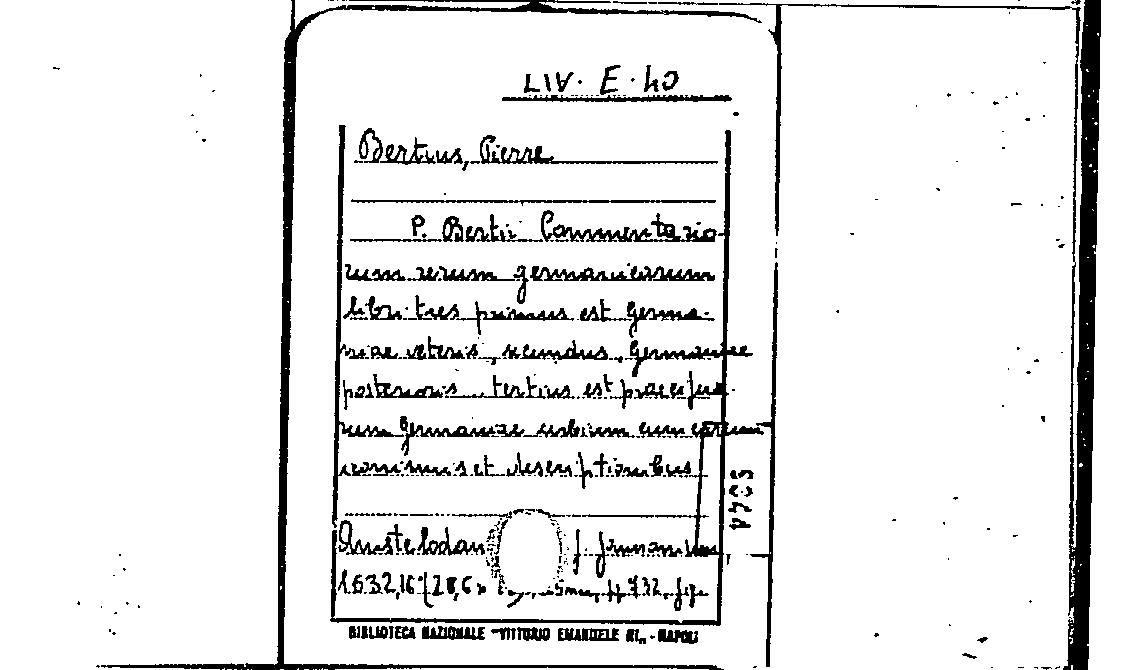 LIV. E. 40
Bertius, Pierre
P. Bertii Commentario-
rum rerum germanicarum
libri tres primus est Germa-
niae veteris, secundus, Germaniae
posterioris, tertius est praecipua-
rum Germaniae urbium cum earum
iconismis et descriptionibus
Amstelodam
1632, 16°
pp. 732, fig.
5044
BIBLIOTECA NAZIONALE "VITTORIO EMANUELE III" - NAPOLI